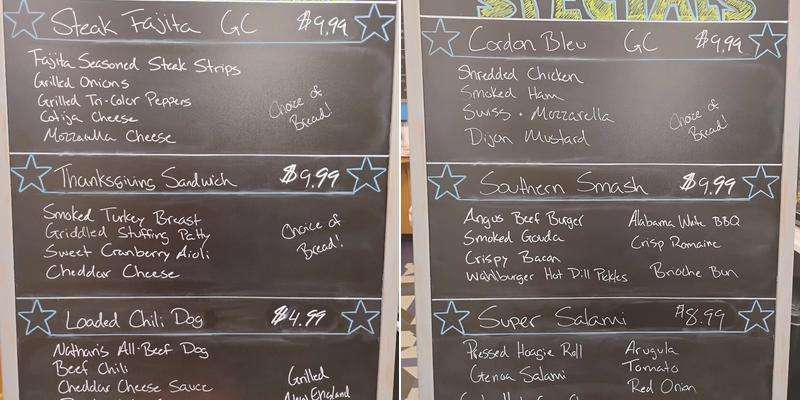 Steak Fajita GC $9.99
Fajita Seasoned Steak Strips
Grilled Onions
Grilled Tri-Color Peppers
Cotija Cheese
Mozzarella Cheese
Choice of
Bread!
Thanksgiving Sandwich $9.99
Smoked Turkey Breast
Griddled Stuffing Patty
Sweet Cranberry Aioli
Cheddar Cheese
Choice of
Bread!
Loaded Chili Dog $4.99
Nathan's All-Beef Dog
Beef Chili
Cheddar Cheese Sauce
Grilled
New England
SPECIALS
Cordon Bleu GC $9.99
Shredded Chicken
Smoked Ham
Swiss · Mozzarella
Dijon Mustard
Choice of
Bread!
Southern Smash $9.99
Angus Beef Burger
Smoked Gouda
Crispy Bacon
Wahlburger Hot Dill Pickles
Alabama White BBQ
Crisp Romaine
Brioche Bun
Super Salami $8.99
Pressed Hoagie Roll
Genoa Salami
Arugula
Tomato
Red Onion